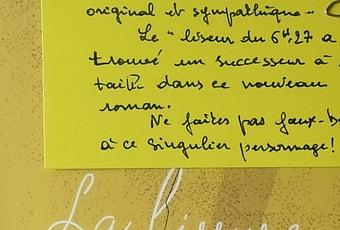 original et sympathique -
Le "liseur du 6h27 a
trouvé un successeur à
taille dans ce nouveau
roman.
Ne faites pas faux-b
à ce singulier personnage !
La